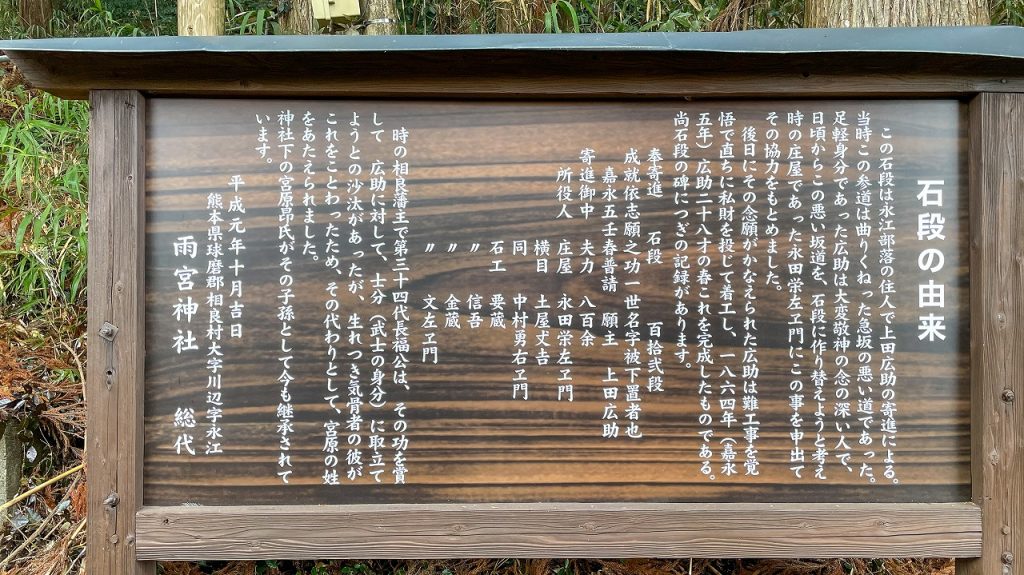 石段の由来
この石段は永江部落の住人で上田広助の寄進による。
当時この参道は曲りくねった急坂の悪い道であった。
足軽身分であった広助は大変敬神の念の深い人で、
日頃からこの悪い坂道を、石段に作り替えようと考え
時の庄屋であった永田栄左ヱ門にこの事を申出て
その協力をもとめました。
後日にその念願がかなえられた広助は難工事を覚
悟で直ちに私財を投じて着工し、一八六四年（嘉永
五年）広助二十八才の春これを完成したものである。
尚石段の碑につぎの記録があります。
奉寄進 石段 百拾弐段
成就依志願之功一世名字被下置者也
嘉永五壬春普請 願主 上田広助
寄進御中 夫力 八百余
所役人 庄屋 永田栄左ヱ門
横目 土屋丈吉
同 中村勇右ヱ門
石工 要蔵
〃 信吾
〃 金蔵
〃 文左ヱ門
時の相良藩主で第三十四代長福公は、その功を賞
して 広助に対して、士分（武士の身分）に取立て
ようとの沙汰があったが、生れつき気骨者の彼が
これをことわったため、その代わりとして、宮原の姓
をあたえられました。
神社下の宮原昂氏がその子孫として今も継承されて
います。
平成元年十月吉日
熊本県球磨郡相良村大字川辺字永江
雨宮神社 総代